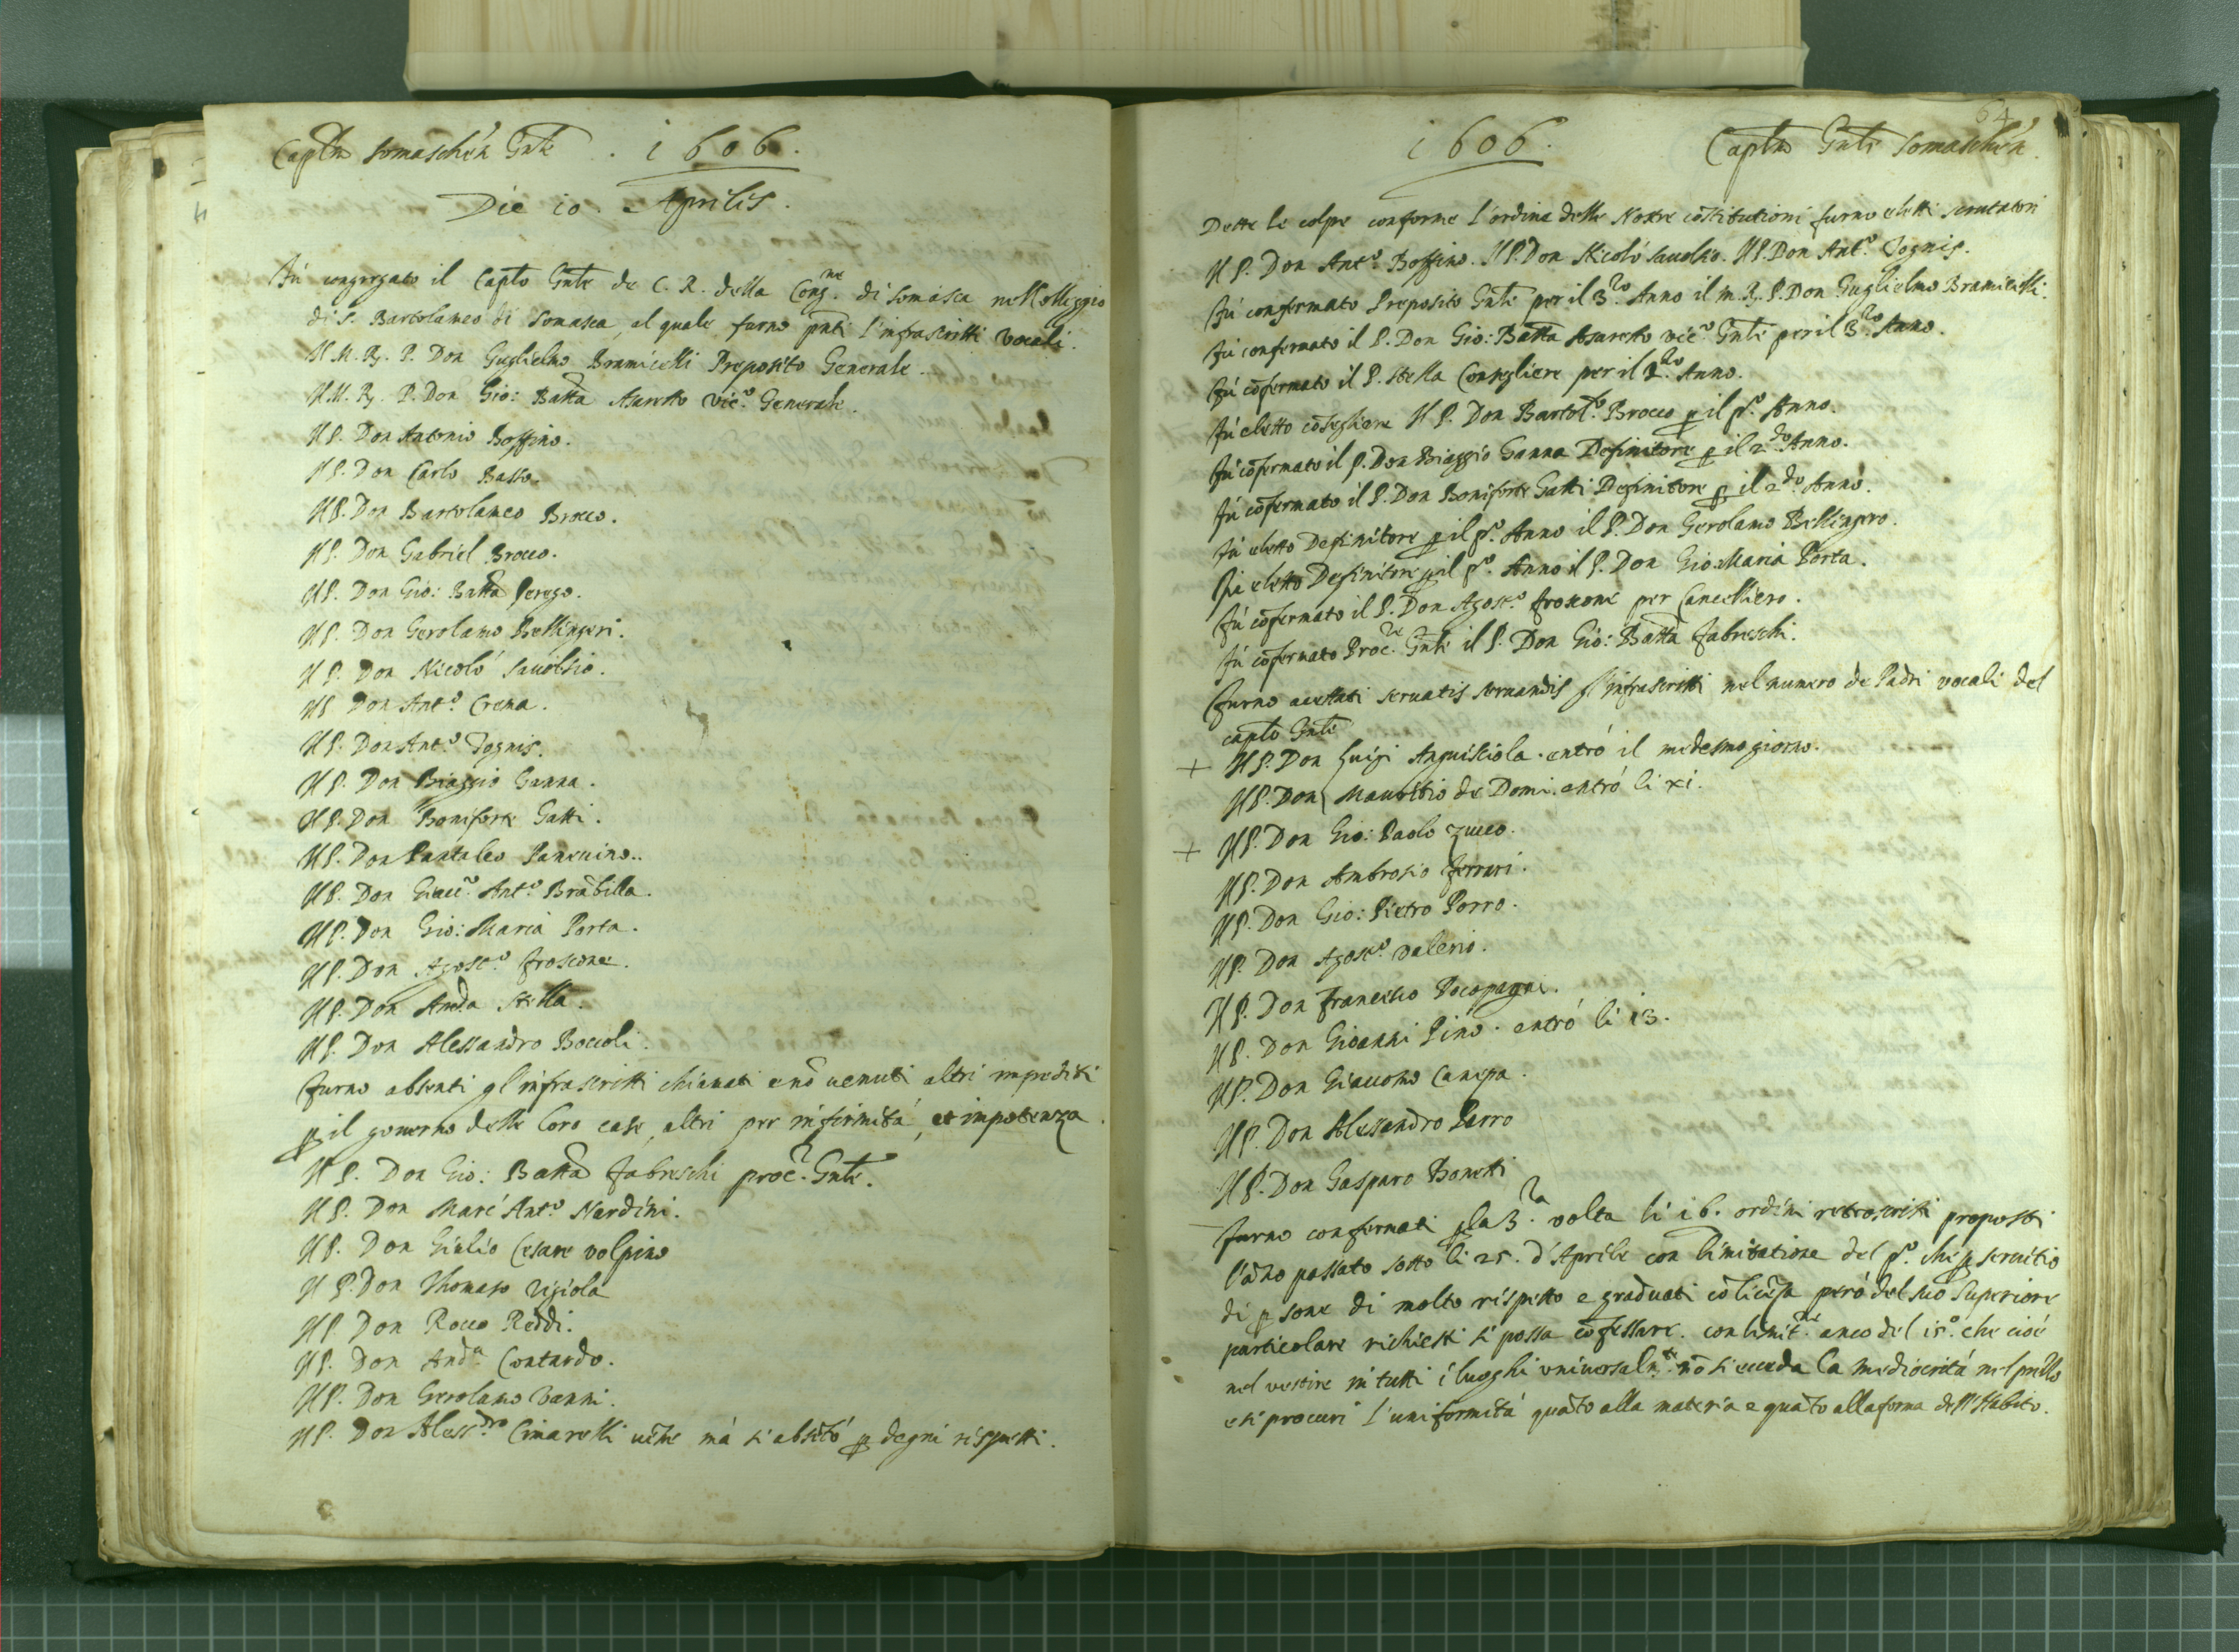 Captm Somaschen Gnle . 1606.
Die 10. Aprilis.
Fù congregato il Capto Gnle de C. R. della Cong.ne di Somasca nel Colleggio
di S. Bartolameo di Somasca, al quale furno pnti l'infrascritti vocali.
Il M. R. P. Don Guglielmo Bramicelli Preposito Generale.
Il M. R. P. Don Gio: Batta Asaretto Vic.o Generale.
Il P. Don Antonio Boffino.
Il P. Don Carlo Basso.
Il P. Don Bartolameo Brocco.
Il P. Don Gabriel Brocco.
Il P. Don Gio: Batta Perego.
Il P. Don Gerolamo Bellingeri.
Il P. Don Nicolò Savolsio.
Il P. Don Ant.o Crena.
Il P. Don Ant.o Tognis.
Il P. Don Biaggio Ganna.
Il P. Don Boniforte Gatti.
Il P. Don Pantaleo Panevino..
Il P. Don Giac.o Ant.o Brãbilla.
Il P. Don Gio: Maria Porta.
Il P. Don Agost.o Froscone.
Il P. Don And.a Stella.
Il P. Don Alessandro Boccoli.
Furno absenti gl'infrascritti chiamati e nõ venuti altri impediti
p il governo delle loro case, altri per infirmità, et impotenza.
Il P. Don Gio: Batta Fabreschi proc.r Gnle.
Il P. Don Marc'Ant.o Nardini.
Il P. Don Giulio Cesare Volpino
Il P. Don Thomaso Rigiola
Il P. Don Rocco Reddi.
Il P. Don And.a Contardo.
Il P. Don Gerolamo Vanni.
Il P. Don Aless.dro Cimarelli vẽne mà si absẽtò p degni rispetti.
64
1606. Captm Gnle Somaschen.
Dette le colpe conforme l'ordine delle Nostre cõstitutioni furno eletti scrutatori
Il P. Don Ant.o Boffino. Il P. Don Nicolò Savolsio. Il P. Don Ant.o Tognis.
Fù confermato Preposito Gnle per il 3.zo Anno il m. R. P. Don Guglielmo Bramicelli
Fù confermato il P. Don Gio: Batta Asaretto Vic.o Gnle per il 3.zo Anno.
Fù cõfermato il P. Stella Consigliere per il 2.do Anno.
Fù eletto cõsigliere Il P. Don Bartol.o Brocco p il p.o Anno.
Fù cõfermato il P. Don Biaggio Ganna Definitore p il 2.do Anno.
Fù cõfermato il P. Don Boniforte Gatti Definitore p il 2.do Anno.
Fù eletto Definitore p il p.o Anno il P. Don Gerolamo Bellingero.
Fù eletto Definitore p il p.o Anno il P. Don Gio: Maria Porta.
Fù cõfermato il P. Don Agost.o Froscone per Cancelliero.
Fù cõfermato Proc.re Gnle il P. Don Gio: Batta Fabreschi.
Furno accettati servatis servandis gl'infrascritti nel numero de Padri vocali del
capto Gnle
+ Il P. Don Luigi Anguisciola. entrò il medesmo giorno.
Il P. Don Mauritio de Domi. entrò li xi.
+ Il P. Don Gio: Paolo Zucco.
Il P. Don Ambrosio Ferrari.
Il P. Don Gio: Pietro Porro.
Il P. Don Agost.o Valerio.
Il P. Don Francesco Pocopagni.
Il P. Don Gioanni Pino. entrò li 13.
Il P. Don Giacomo Canepa.
Il P. Don Alessandro Porro
Il P. Don Gasparo Bonetti
Furno confermati p la 3.za volta li 16. ordini retroscritti proposti
l'ãno passato sotto li 25. d'Aprile con limitatione del p.o che p servitio
di p sone di molto rispetto e graduati cõ licẽza però del suo Superiore
particolare richiesti si possa cõfessare. con limit.ne anco del 15.o che cioè
nel vestire in tutti i luoghi universalm.te nõ si ecceda la mediocrità nel prezzo
e si procuri l'uniformità quãto alla materia e quãto alla forma dell'Habito.